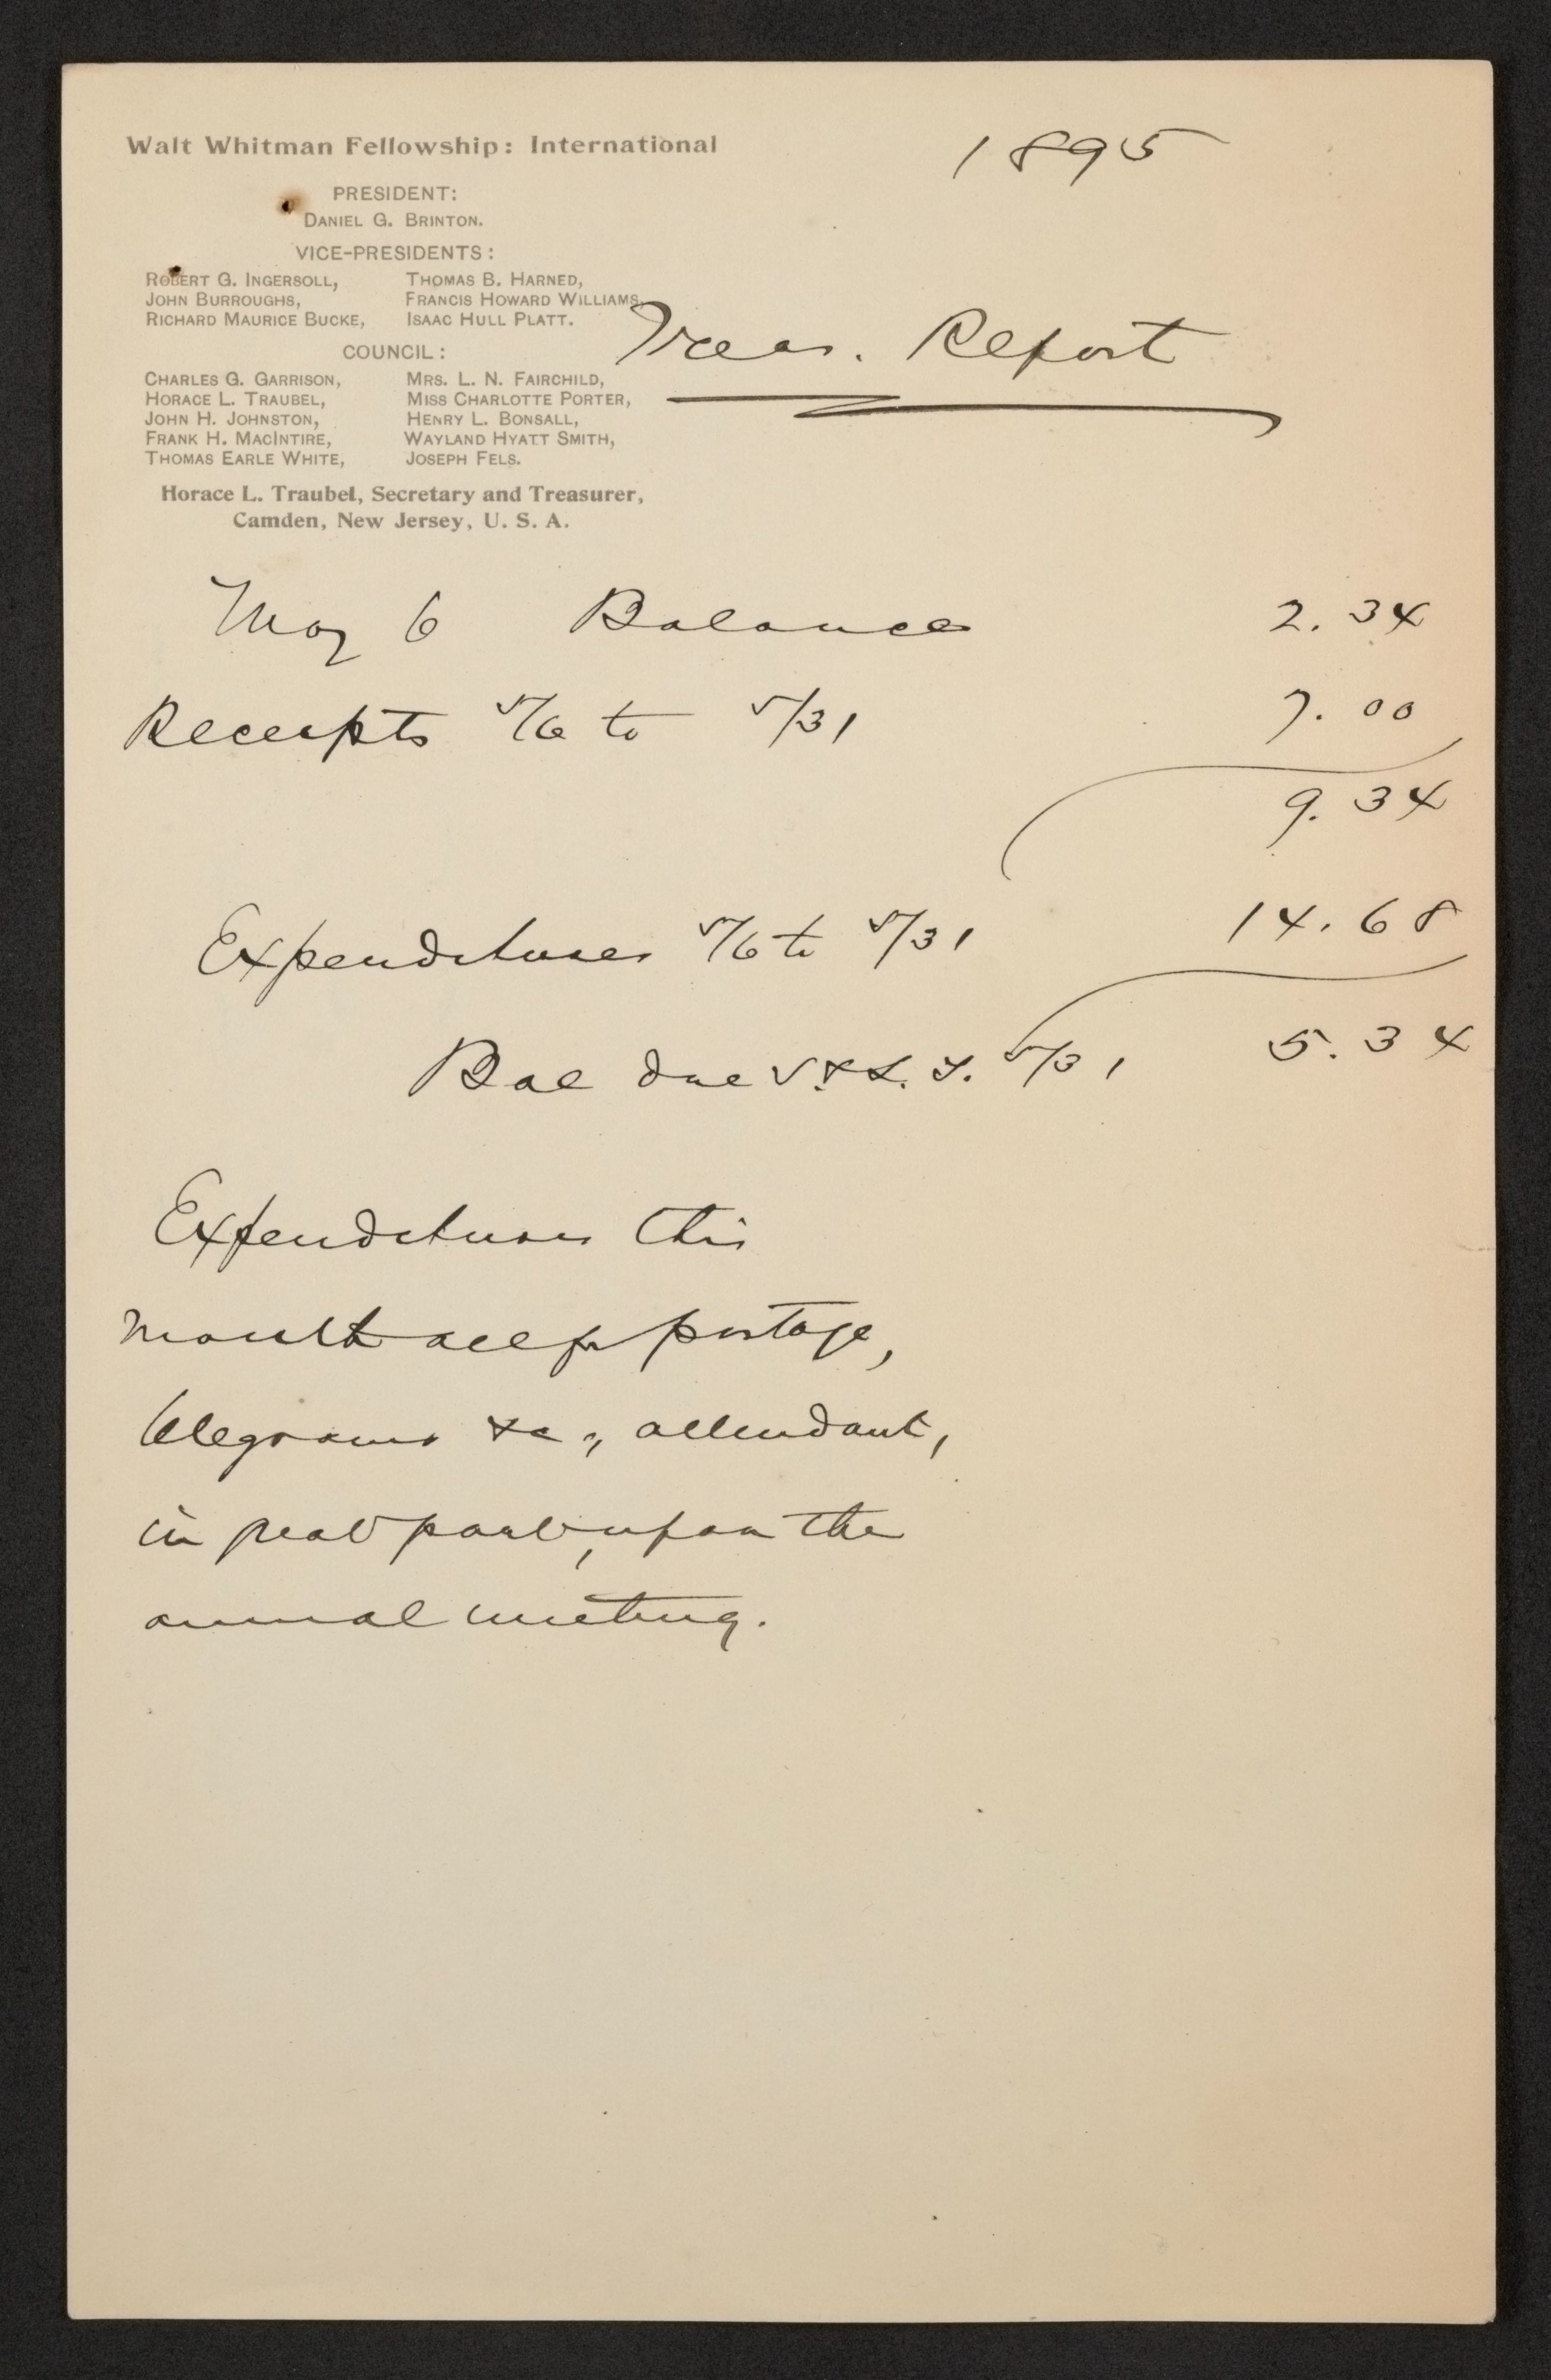 Walt Whitman Fellowship: International
1895
PRESIDENT:
DANIEL G. BRINTON.
VICE-PRESIDENTS:
ROBERT G. INGERSOLL, THOMAS B. HARNED,
JOHN BURROUGHS, FRANCIS HOWARD WILLIAMS,
RICHARD MAURICE BUCKE, ISAAC HULL PLATT.
Treas. Report
COUNCIL:
CHARLES G. GARRISON, MRS. L. N. FAIRCHILD,
HORACE L. TRAUBEL, MISS CHARLOTTE PORTER,
JOHN H. JOHNSTON, HENRY L. BONSALL,
FRANK H. MACINTIRE, WAYLAND HYATT SMITH,
THOMAS EARLE WHITE, JOSEPH FELS.
Horace L. Traubel, Secretary and Treasurer,
Camden, New Jersey, U. S. A.
May 6 Balance 2.34
Receipts 5/6 to 5/31 7.00
9.34
Expenditures 5/6 to 5/31 14.68
Bal due 5/31 5.34
Expenditures this
month all for postage,
telegrams &c., attendant,
in great part, upon the
annual meeting.